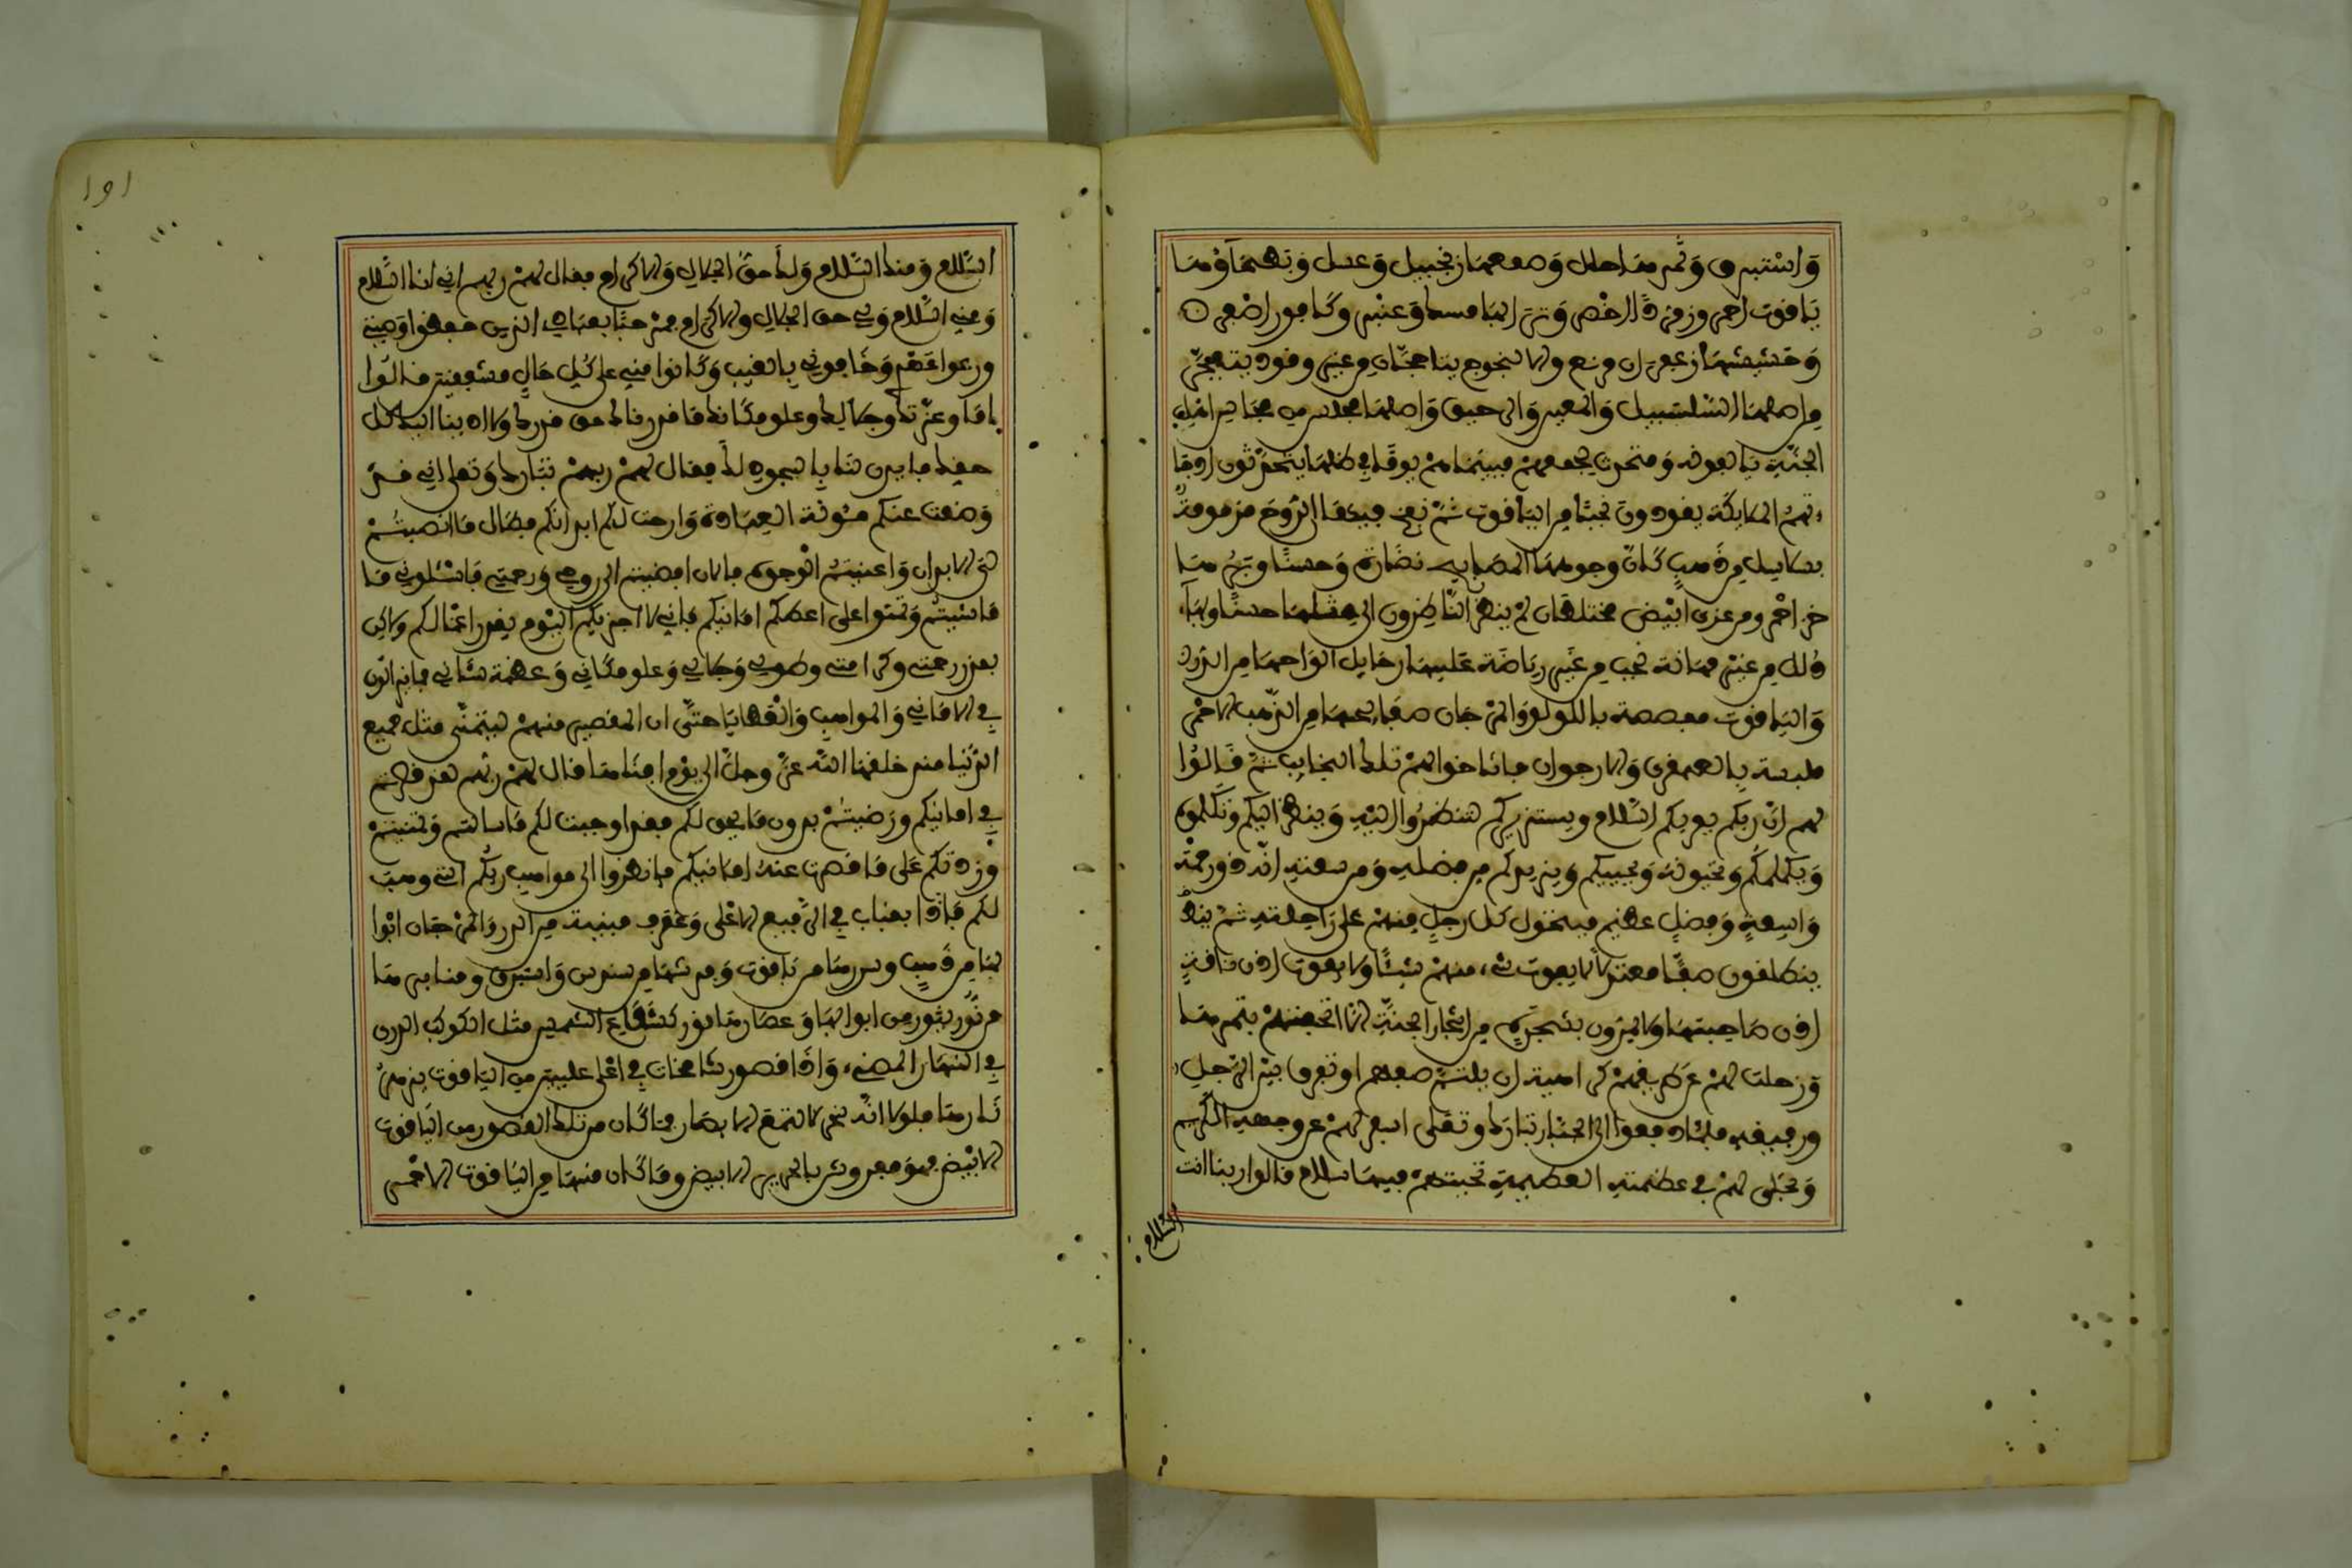 وَاسْتبرق وَثمرها حلل وَصمغها زنجبيل وَعسل وَبطحآؤها
ياقوت احمر وزمرذ اخضر وَترابها مسك وَعنبر وكافور اصفر
وَحشيشها زعفران مونع والالنجوج يتاججان من غير وقود يتفجر
من اصلها السلسبيل وَالمعين وَالرحيق وَاصلها مجلس من مجالس اهل
الجنة يالفونه وَمتحدث يجمعهم فبينما هم يوما في ظلها يتحدثون اذ
تهم الملايكة يقودون نجبا من الياقوت ثم نفخ فيها الروح مزمومة
بسلاسل من ذهب كان وجوهها المصابيح نضارة وَحسنا وبرها
خز احمر ومرعزى ابيض مختلطان لم ينظر الناظرون الى مثلها حسنا وبهاء
ذلل من غير مهانة نجب من غير رياضة عليها رحايل الواحها من الدر
وَالياقوت مفصصة باللولو وَالمرجان صفايحها من الذهب الاحمر
ملبسة بالعبقرى وَالارجوان فاناخوا لهم تلك النجايب ثم قالوا
لهم ان ربكم يقريكم السلام ويستزيركم لتنظروا اليه وَينظر اليكم وتكلموه
وَيكلمكم وَتحيونه وَيحييكم وَيزيدكم من فضله وَمن سعته انه ذو رحمة
وَاسعة وَفضل عظيم فيتحول كل رجل منهم على راحلته ثم
ينطلقون صفا معتدلا لا يفوت شيء منهم شيئا ولا يفوت اذن ناقة
اذن صاحبتها ولا يمرون بشجرة من اشجار الجنة الا اتحفتهم بثمرها
وَزحلت لهم عن طريقهم كراهية ان ينثلم صفهم او تفرق بين الرجل
ورفيقه فلما دفعوا الى الجبار تبارك وتعلى اسفر لهم عن وجهه الكريم
وَتجلى لهم في عظمته العظيمة تحيتهم فيها سلام قالوا ربنا انت
السلام
السلام وَمنك السلام وَلك حق الجلال وَالاكرام فقال لهم ربهم اني انا السلام
وَمني السلام وَلي حق الجلال والاكرام فمرحبا بعبادي الذين حفظوا وَصيتي
ورعوا عهدي وَخافوني بالغيب وَكانوا مني على كل حال مشفقين قالوا
اما وعزتك وجلالك وعلو مكانك ما قدرناك حق قدرك ولا ادينا اليك كل
حقك فايذن لنا بالسجود لك فقال لهم ربهم تبارك وَتعلى اني قد
وَضعت عنكم مئونة العبادة وَارحت لكم ابدانكم فطال ما انصبتم
لي الابدان وَاعنيتم الوجوه فالان افضيتم الى روحي وَرحمتي فاسئلوني ما
ماشيتم وَتمنوا على اعطكم امانيكم فاني لا اجزيكم اليوم بقدر اعمالكم ولاكن
بقدر رحمتي وكرامتي وطولي وَجلالي وَعلو مكاني وَعظمة شاني فما يزالون
في الاماني وَالمواهب وَالعطايا حتى ان المقصر منهم ليتمنى مثل جميع
الدنيا منذ خلقها الله عز وجل الى يوم افناها فقال لهم ربهم لقد قصرتم
في امانيكم ورَضيتم بدون ما يحق لكم فقد اوجبت لكم ما سالتم وَتمنيتم
وَزدتكم على ما قصرت عنه امانيكم فانظروا الى مواهب ربكم التي وهب
لكم فاذا بقباب في الرفيع الاعلى وَغرف مبنية من الدر وَالمرجان ابوا
بها من ذهب وسررها من ياقوت وَفرشها من سندس وَاستبرق ومنابرها
من نور يثور من ابوابها وَعصارها نور كشعاع الشمس مثل الكوكب الدرى
في النهار المضيء وَاذا قصور شامخات في اعلى عليين من الياقوت يزهر
نارها فلولا انه سخر لالتمع الابصار فما كان من تلك القصور من الياقوت
الابيض فهو مفروش بالحرير الابيض وما كان منها من الياقوت الاحمر